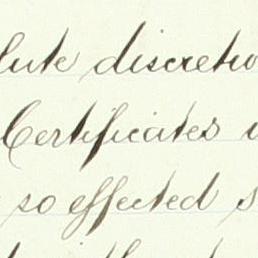 lute discretio
Certificates
so effected s